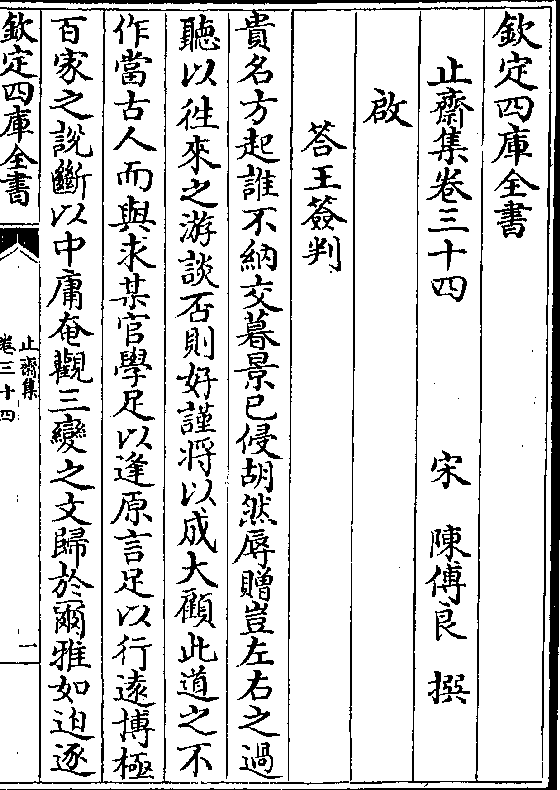 欽定四庫全書
止齋集卷三十四
宋 陳傅良 撰
啟
荅王簽判
貴名方起誰不納交暮景已侵胡然辱贈豈左右之過
聽以徃來之游談否則好謹將以成大顧此道之不
作當古人而與求某官學足以逢原言足以行逺博極
百家之説斷以中庸奄觀三變之文歸於爾雅如迫逐
欽定四庫全書
止齋集
卷三十四
一